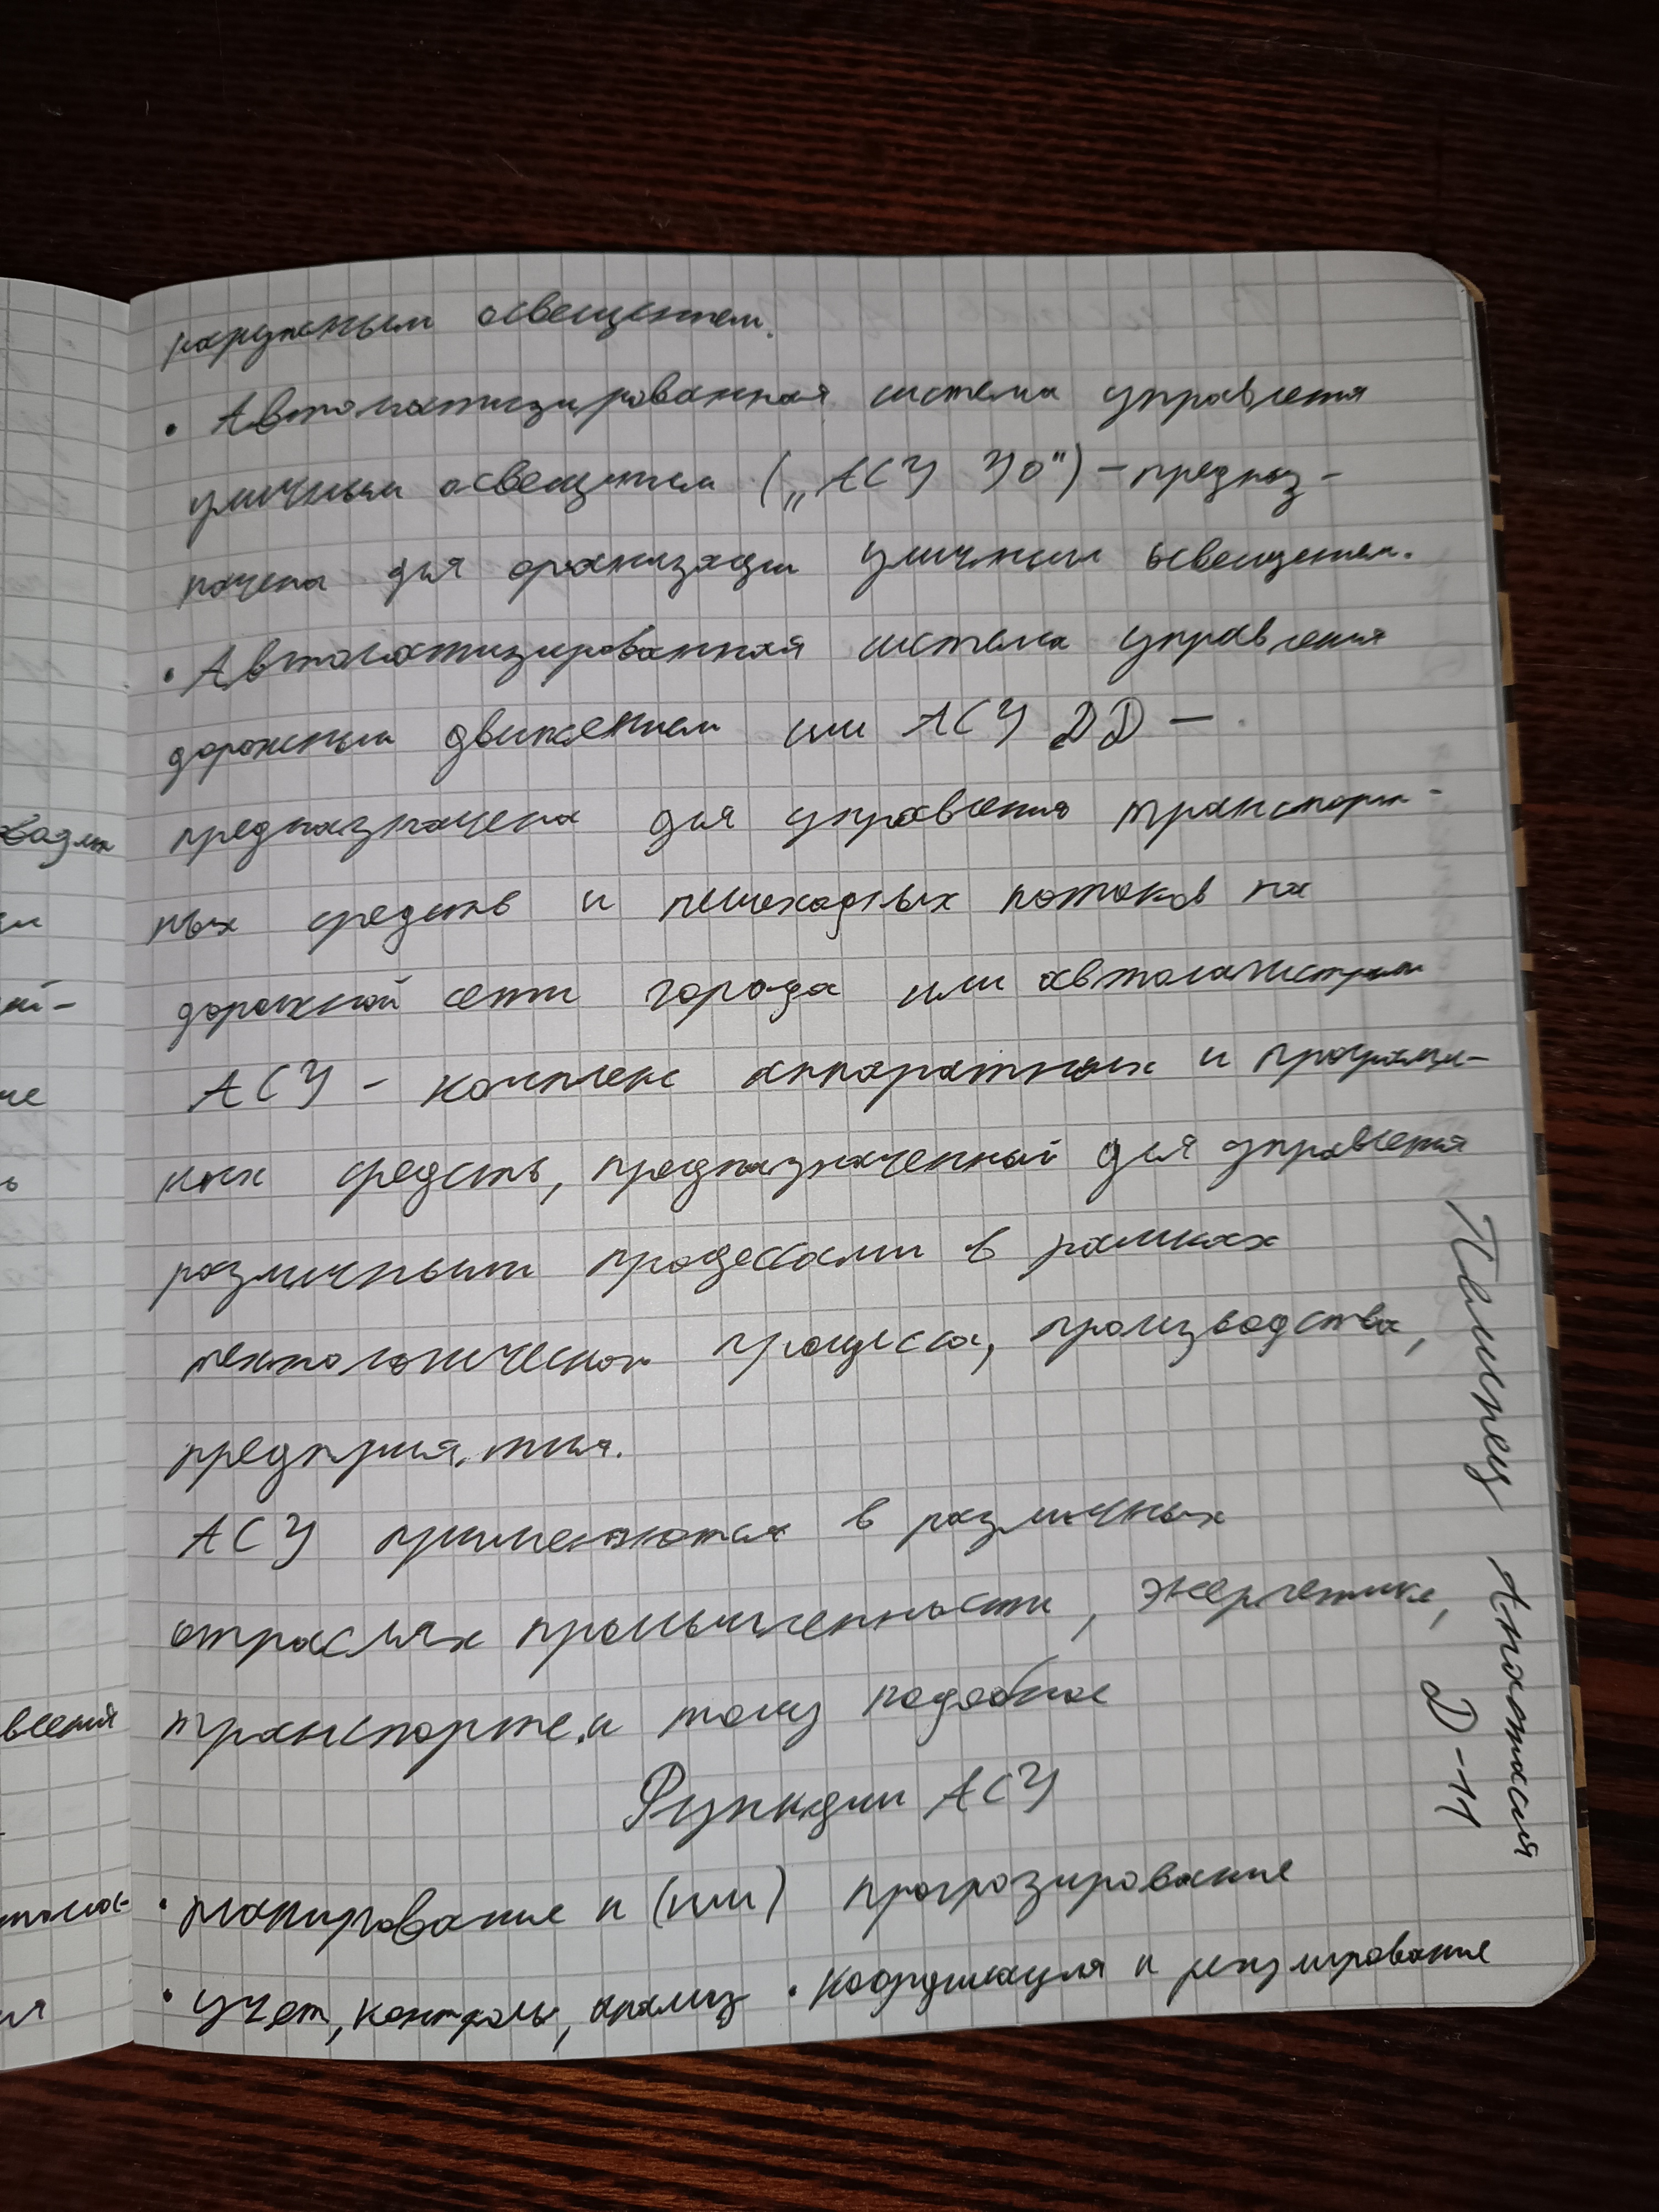 наружным освещением.
• Автоматизированная система управления
уличным освещением („АСУ УО") – предназ-
начена для организации уличным освещением.
• Автоматизированная система управления
дорожным движением или АСУ ДД –
предназначена для управления транспорт-
ных средств и пешеходных потоков на
дорожной сети города или автомагистрали
АСУ – комплекс аппаратных и программ-
ных средств, предназначенный для управления
различными процессами в рамках
технологического процесса, производства,
предприятия.
АСУ применяются в различных
отраслях промышленности, энергетике,
транспорте и тому подобное
Функции АСУ
• планирование и (или) прогрозирование
• учет, контроль, анализ • координация и регулирование
Анастасия
Д-11
вления